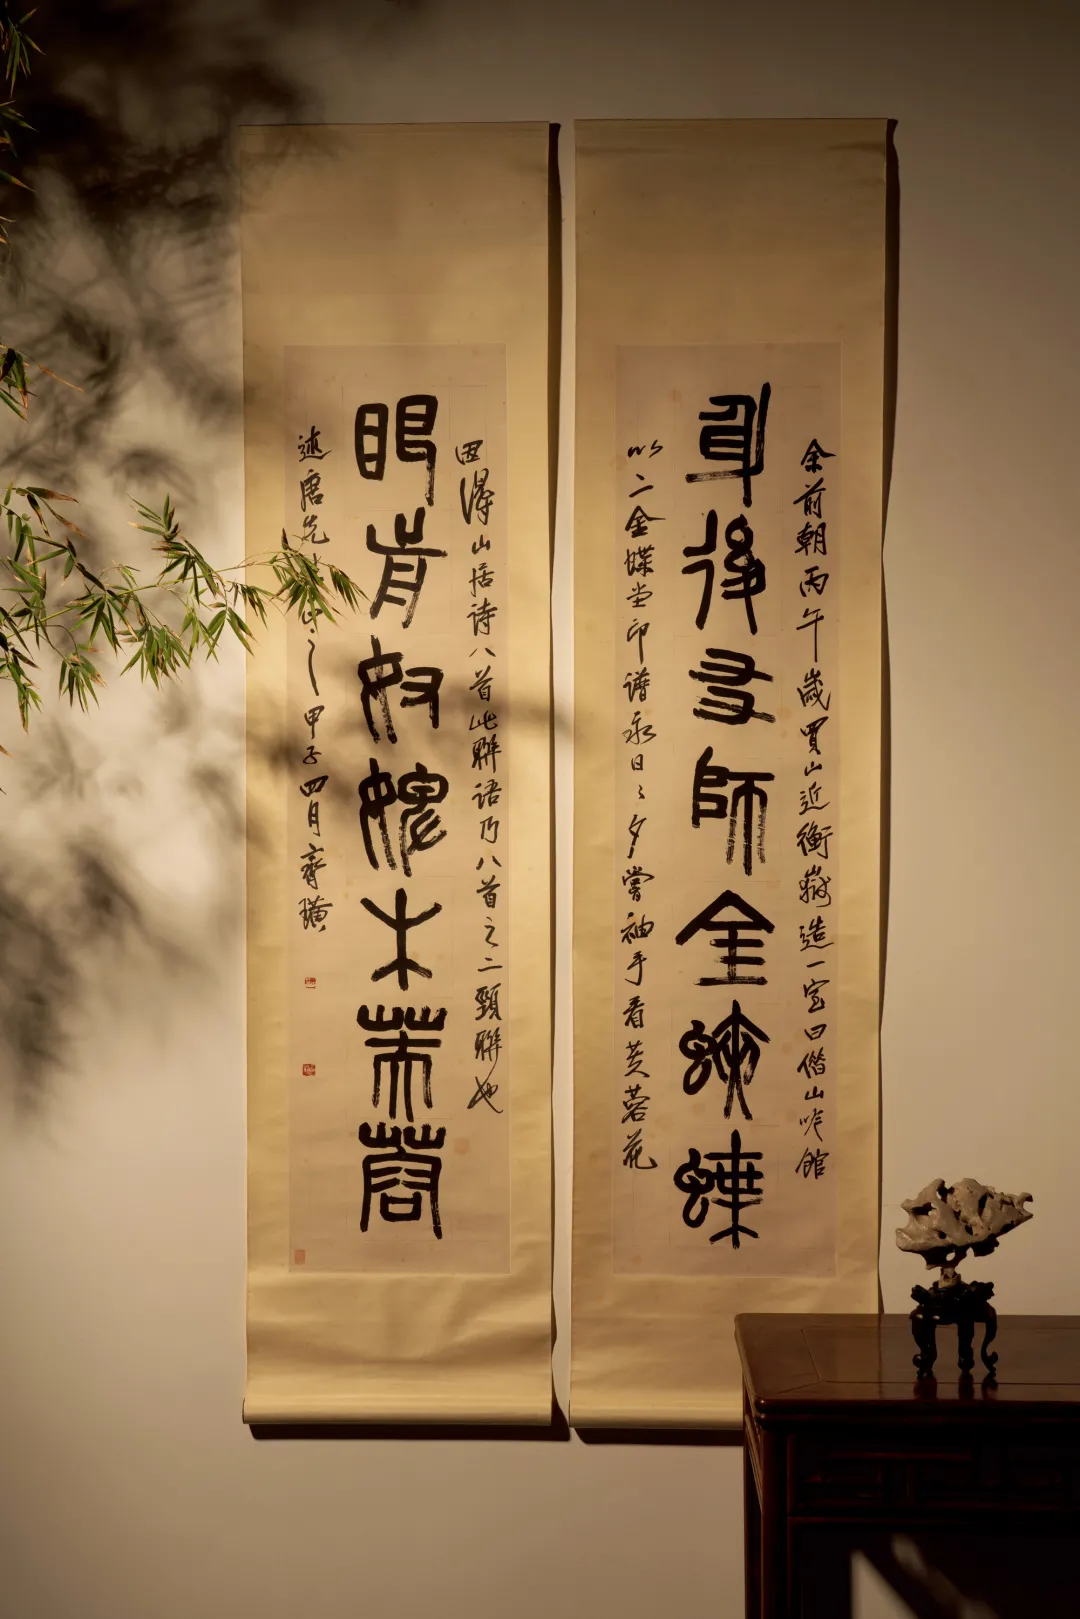 余前朝丙午歲買山近衡嶽造一室曰借山吟館
身後友師金蛺蝶
以二金蝶堂印譜永日〻夕嘗袖手看芙蓉花
因得山居詩八首此聯語乃八首之二頸聯也
眼前奴婢木芙蓉
述唐先 之 甲子四月齊璜